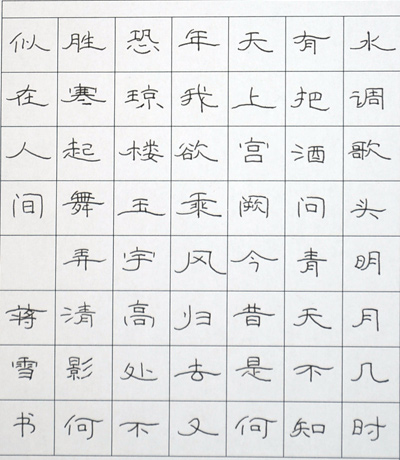 水调歌头明月几时
有把酒问青天不知
天上宫阙今昔是何
年我欲乘风归去又
恐琼楼玉宇高处不
胜寒起舞弄清影何
似在人间 蒋雪书